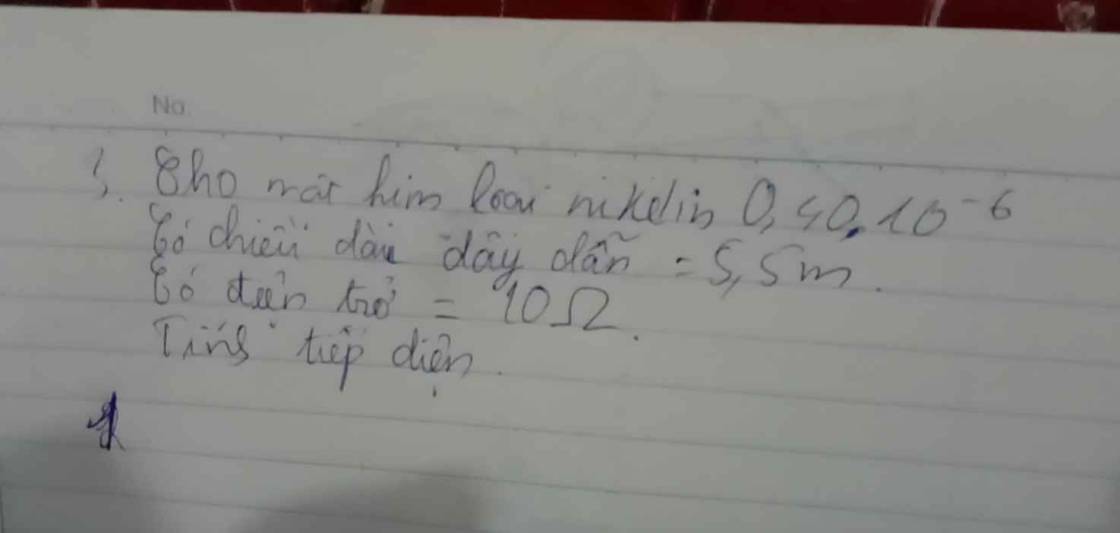 No.
3. Cho một kim loại nikelin 0,40.10⁻⁶
Có chiều dài dây dẫn = 5,5m.
Có điện trở = 10Ω.
Tính tiếp diện.